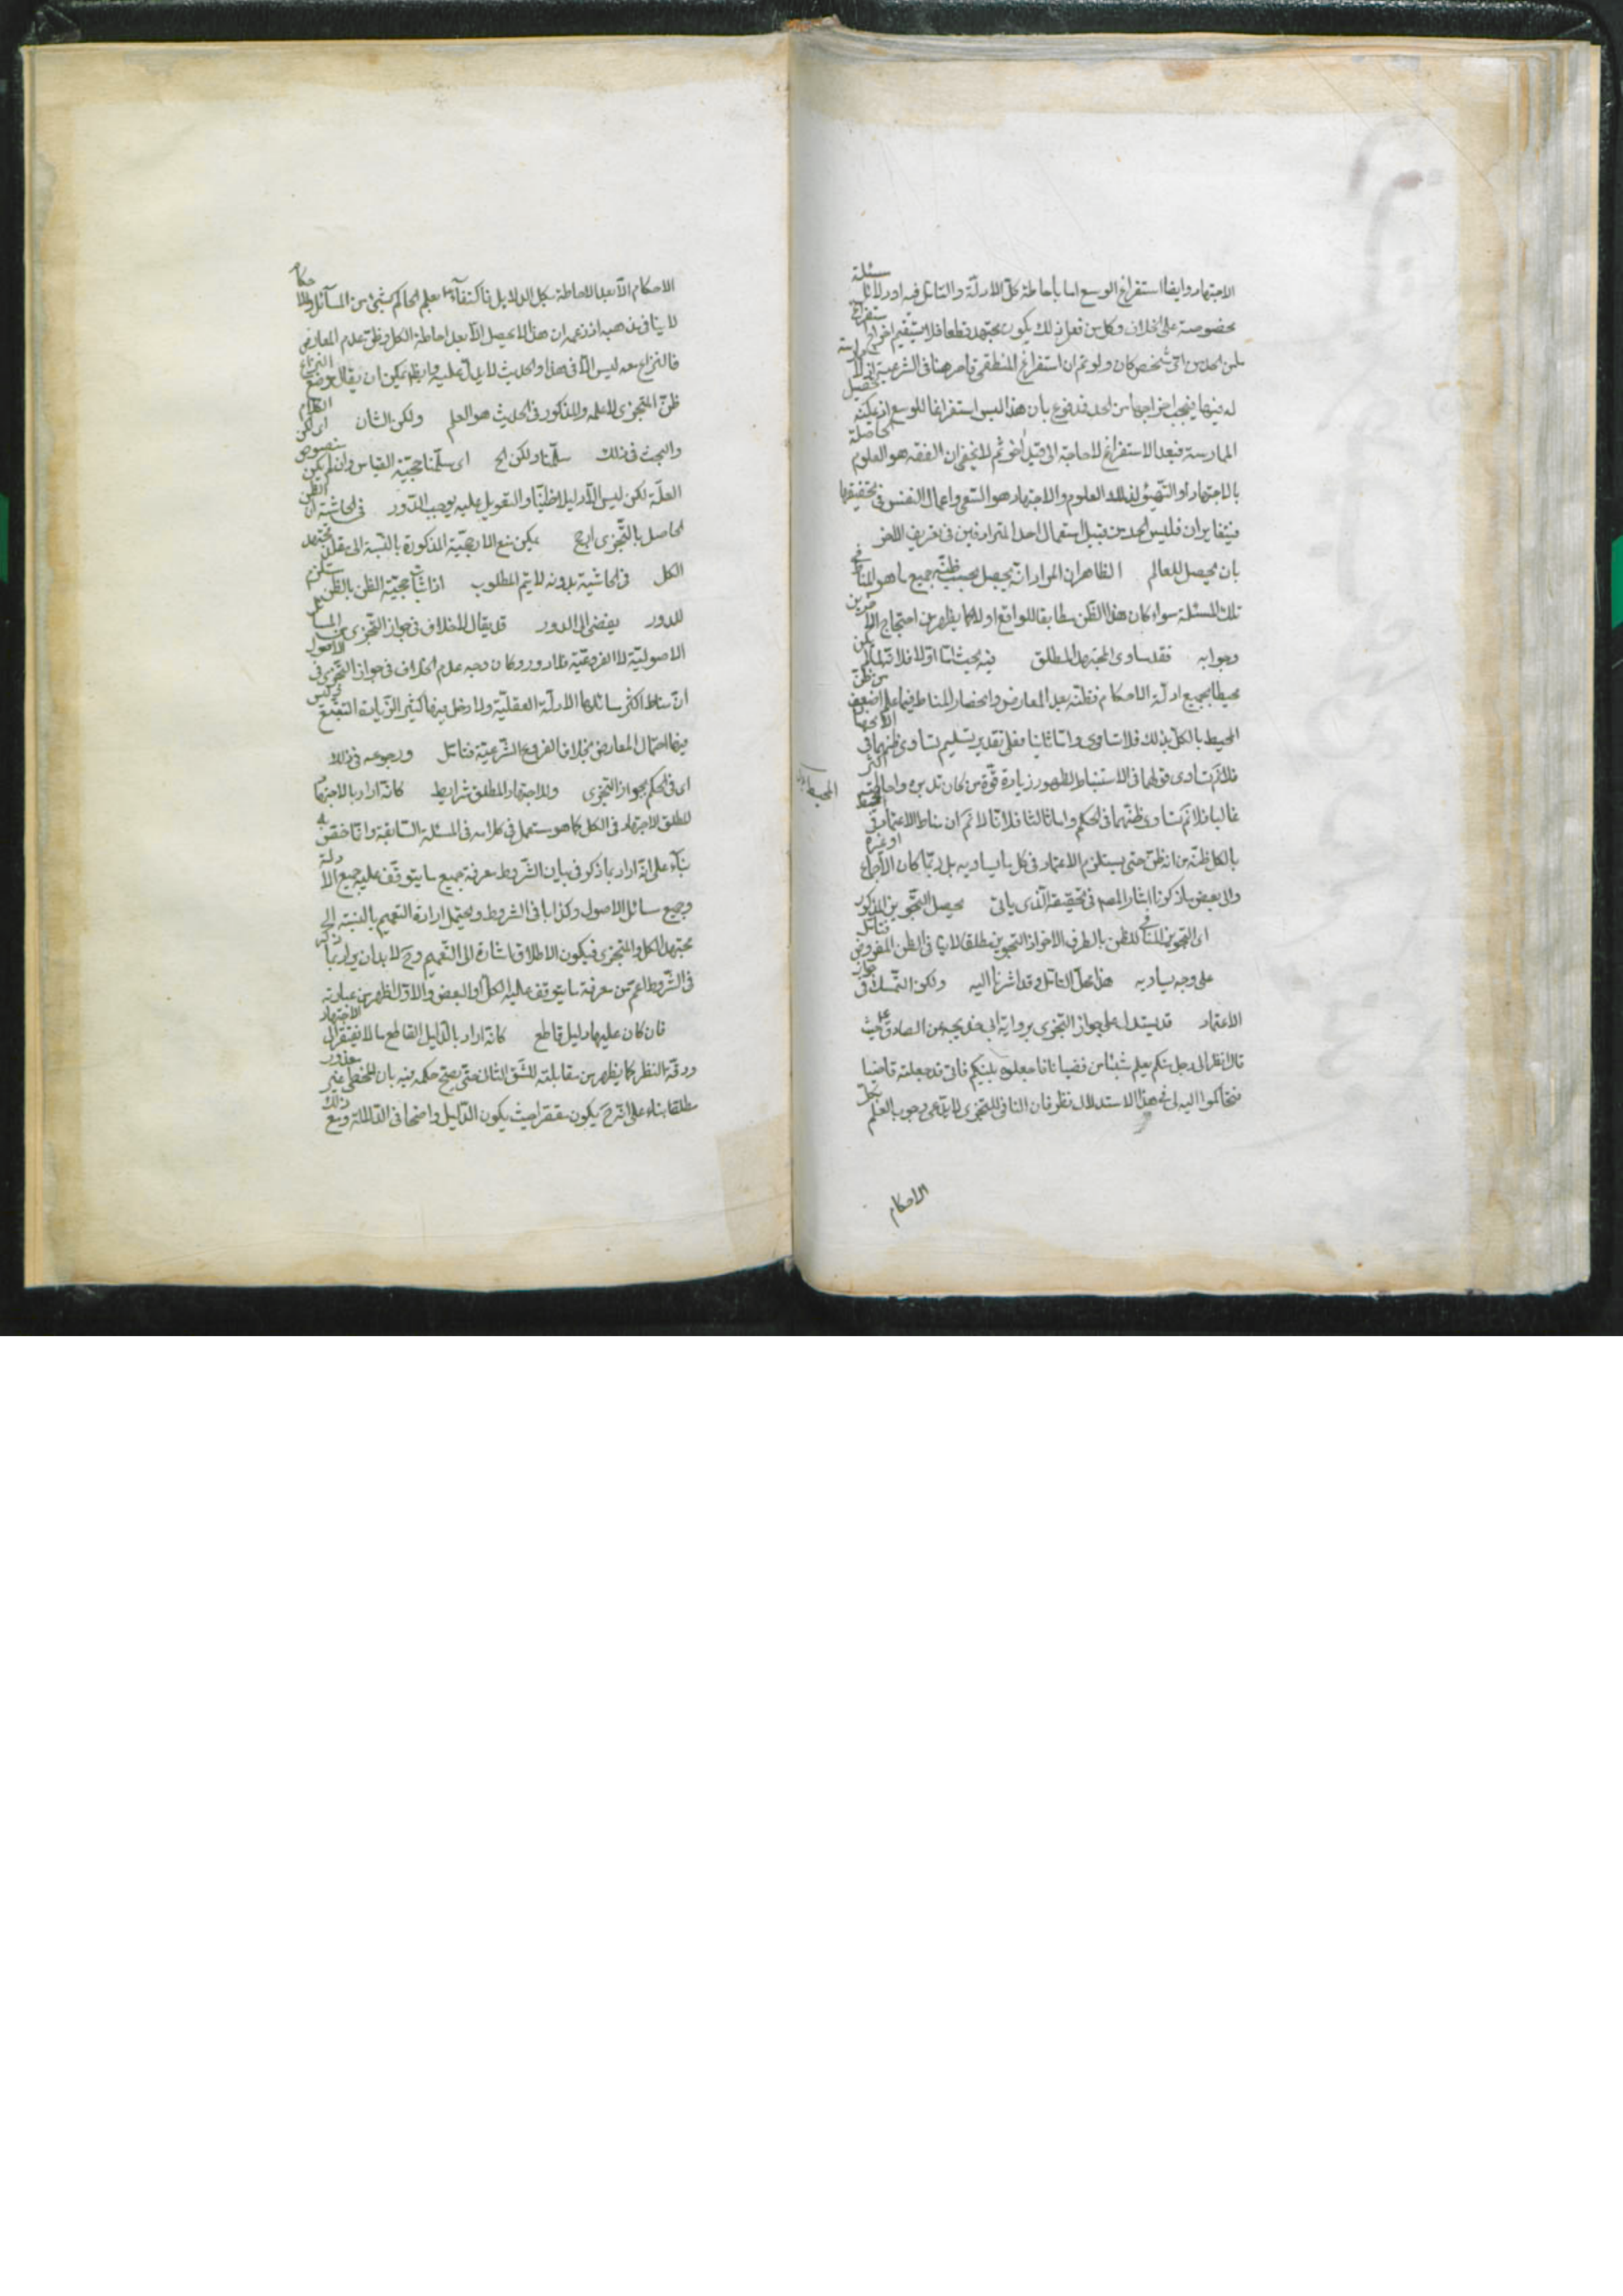 الاجتهاد وايضا استفراغ الوسع اما باحاطة كل الادلة والتامل فيه اولا مسئلة
بخصوصه على الخلاف وكل من فعل ذلك يكون مجتهد قطعا فلا يستقيم اخراج استفراغ
من الحد من اى شخص كان ولو تم ان استفراغ المنطقى قاصر هنا فى الشرعية اذ لا
له فيها فيجب اخراجها من الحد فمدفوع بان هذا ليس استفراغا للوسع اذ يمكنه تحصيل
الممارسة فبعد الاستفراغ لا حاجة الى قيد اخر ثم لا يخفى ان الفقه هو العلوم الحاصلة
بالاجتهاد او التهيؤ لذلك العلوم والاجتهاد هو السعى واعمال النفس فى تحقيقها
فيتغايران فليس الحد من قبيل استعمال احد المترادفين فى تعريف الاخر
بان يحصل للعالم الظاهر ان المراد انه يحصل بحسب ظنه جميع ما هو المناط فى
تلك المسئلة سواء كان هذا الظن مطابقا للواقع او لا كما يظهر من احتجاج الطرفين
وجوابه فقد ساوى المجتهد المطلق فيه بحث اما اولا فلان من لم يكن
محيطا بجميع ادلة الاحكام فظنه بعدم المعارض وانحصار المناط فيما علم اضعف من ظن
المحيط بالكل بذلك فلا تساوى واما ثانيا فعلى تقدير تسليم تساوى ظنهما فى
فلا تساوى قولهما فى الاستنباط لظهور زيادة قوة من كان تدبره واحاطته اكثر
غالبا فلا نم تساوى ظنهما فى الحكم واما ثالثا فلانا لا نم ان مناط الاعتماد
المحيط
بالكل ظنه من انه ظن حتى يستلزم الاعتماد فى كل ما يساويه بل ربما كان الاجماع او غيره
والى بعض ما ذكرنا اشار المصـ فى تحقيقه الذى ياتى يحصل التجويز المذكور
اى التجويز المنافى للظن بالطرف الاخر اذ التجويز مطلقا لا ينافى الظن المفروض فتامل
على وجه يساويه هذا محل التامل وقد اشرنا اليه ولكن التمسك فى جواز
الاعتماد قد يستدل على جواز التجزى برواية ابى خديجه عن الصادق ع حيث
قال انظر الى رجل منكم يعلم شيئا من قضايانا فاجعلوه بينكم فانى قد جعلته قاضيا
فتحاكموا اليه فى هذا الاستدلال نظر فان النافى للتجزى يدعى وجوب العلم بكل
الاحكام
الاحكام الا بعد الاحاطة بكل الدلايل فاكتفاؤه بعلم الحاكم بشيء من المسائل والاحكام
لا ينافى مذهبه اذ زعمه ان هذا لا يحصل الا بعد احاطة الكل وظن عدم المعارض
فالنزاع معه ليس الا فى هذا والحديث لا يدل عليه وايضا يمكن ان يقال موضع النزاع
ظن المتجزى لا علمه والمذكور فى الحديث هو العلم ولكن الشان اى لكن الكلام
والبحث فى ذلك سلمنا ولكن الخ اى سلمنا حجية القياس وان لم يكن منصوص
العلة لكن ليس الا دليلا ظنيا والتعويل عليه يوجب الدور فى الحاشية ان الظن
الحاصل بالتجزى ارجح يمكن منع الارجحية المذكورة بالنسبة الى مقلد مجتهد
الكل فى الحاشية بدونه لا يتم المطلوب اذ اثبات حجية الظن بالظن مستلزم
للدور يفضى الى الدور قد يقال لا خلاف فى جواز التجزى من المسائل
الاصولية لا الفروعية فلا دور وكان وجه عدم الخلاف فى جواز التجزى فى الاصول
ان مناط اكثر مسائلها الادلة العقلية ولا دخل فيها كثير الزيادة التتبع فليس
فيها احتمال المعارض بخلاف الفروع الشرعية فتامل ورجوعه فى ذلك
اى فى الحكم بجواز التجزى وللاجتهاد المطلق شرايط كانه اراد بالاجتهاد
المطلق الاجتهاد فى الكل كما هو مستعمل فى كلامه فى المسئلة السابقة وانما خص
بناء على انه اراد بما ذكر فى بيان الشروط معرفة جميع ما يتوقف عليه جميع الادلة
وجميع مسائل الاصول وكذا باقى الشروط ويحتمل ارادة التعميم بالنسبة الى
مجتهد الكل والمتجزى فيكون الاطلاق اشارة الى التعميم وح لا بد ان يراد بما ذكره
فى الشروط اعم من معرفة ما يتوقف عليه الكل او البعض والاول اظهر من عبارته
فان كان عليها دليل قاطع كانه اراد بالدليل القاطع ما لا يفتقر الى الاجتهاد
ودقة النظر كما يظهر من مقابلته للشق الثانى حتى يصح حكمه فيه بان المخطى غير معذور
مطلقا بناء على انه ح يكون مقصرا حيث يكون الدليل واضحا فى الدلالة ومع ذلك